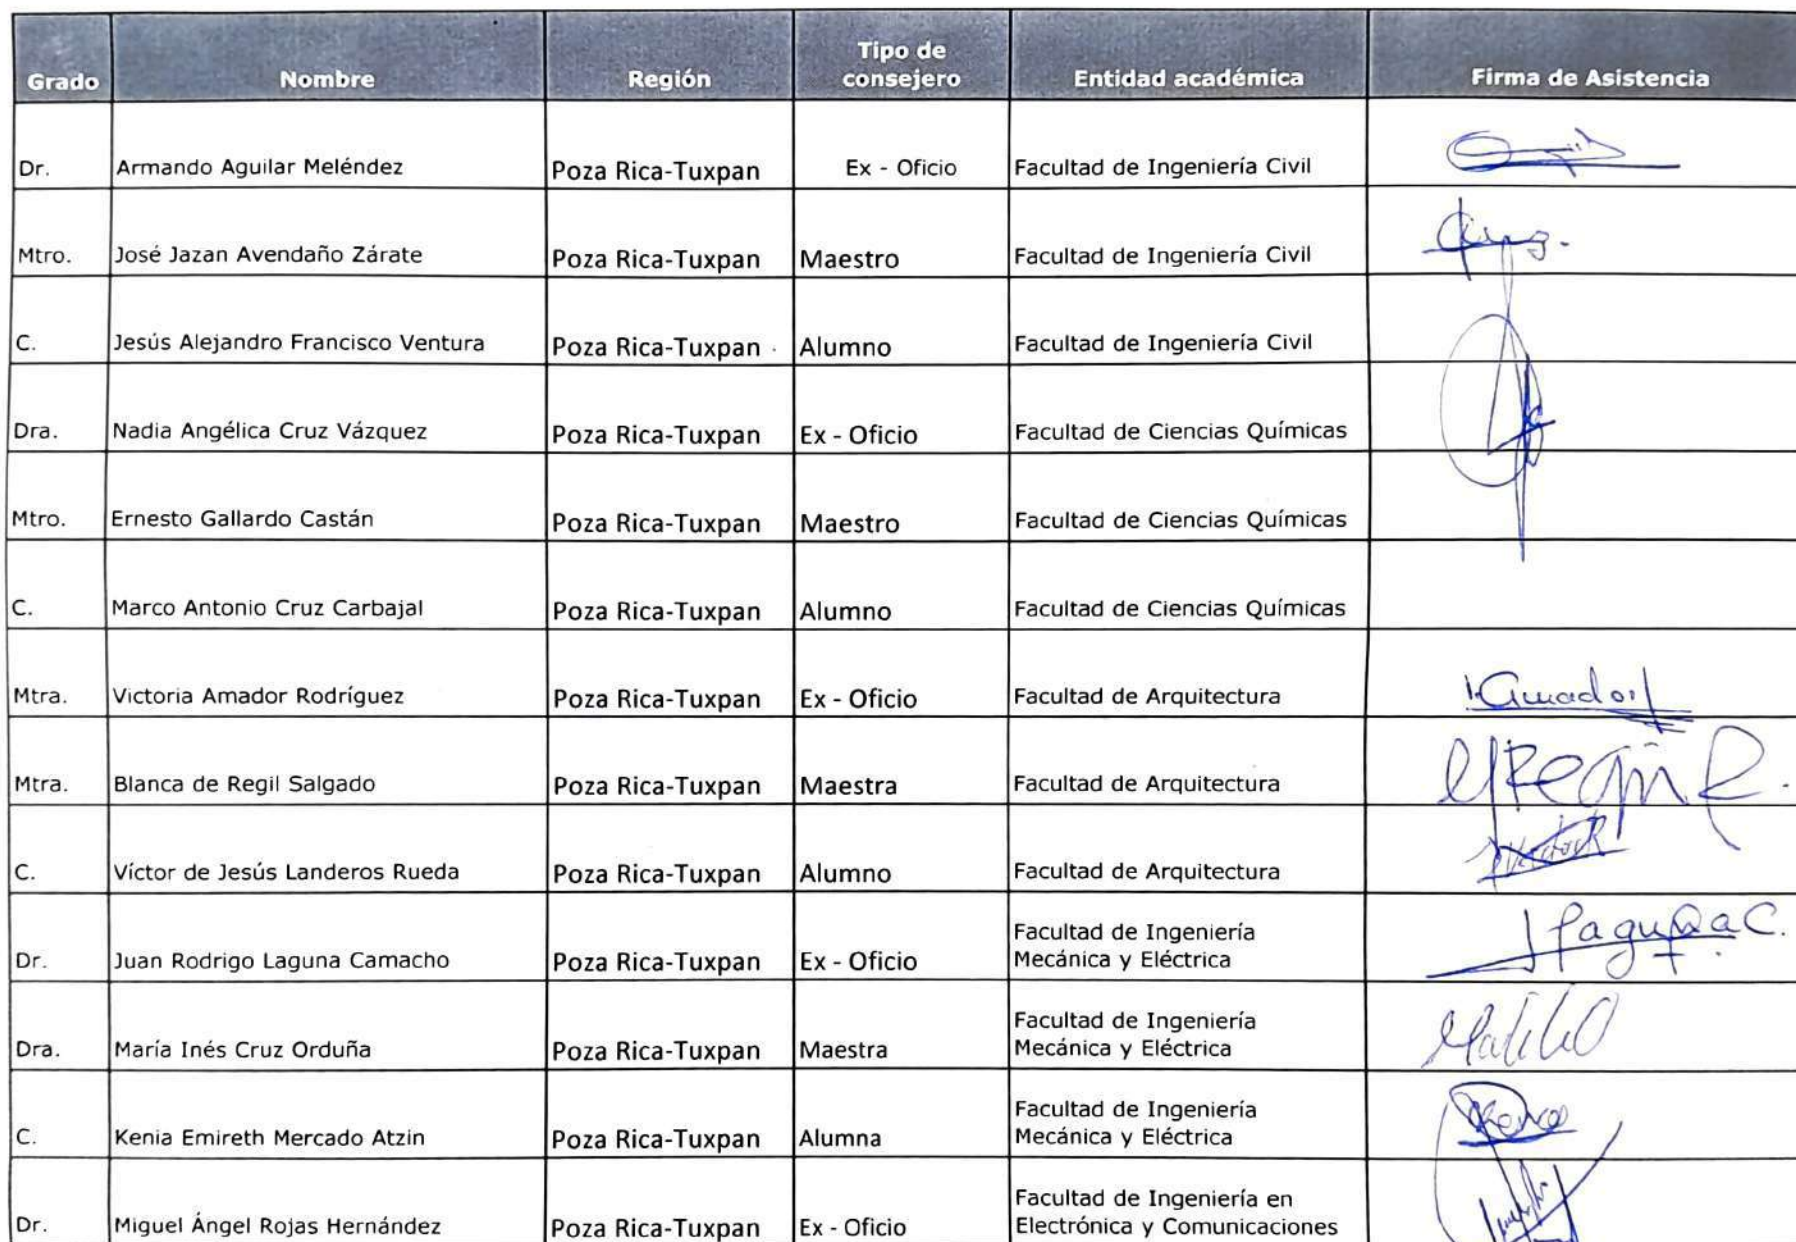 Grado Nombre Región Tipo de consejero Entidad académica Firma de Asistencia
Dr. Armando Aguilar Meléndez Poza Rica-Tuxpan Ex - Oficio Facultad de Ingeniería Civil
Mtro. José Jazan Avendaño Zárate Poza Rica-Tuxpan Maestro Facultad de Ingeniería Civil
C. Jesús Alejandro Francisco Ventura Poza Rica-Tuxpan Alumno Facultad de Ingeniería Civil
Dra. Nadia Angélica Cruz Vázquez Poza Rica-Tuxpan Ex - Oficio Facultad de Ciencias Químicas
Mtro. Ernesto Gallardo Castán Poza Rica-Tuxpan Maestro Facultad de Ciencias Químicas
C. Marco Antonio Cruz Carbajal Poza Rica-Tuxpan Alumno Facultad de Ciencias Químicas
Mtra. Victoria Amador Rodríguez Poza Rica-Tuxpan Ex - Oficio Facultad de Arquitectura
Mtra. Blanca de Regil Salgado Poza Rica-Tuxpan Maestra Facultad de Arquitectura
C. Víctor de Jesús Landeros Rueda Poza Rica-Tuxpan Alumno Facultad de Arquitectura
Dr. Juan Rodrigo Laguna Camacho Poza Rica-Tuxpan Ex - Oficio Facultad de Ingeniería Mecánica y Eléctrica
Dra. María Inés Cruz Orduña Poza Rica-Tuxpan Maestra Facultad de Ingeniería Mecánica y Eléctrica
C. Kenia Emireth Mercado Atzin Poza Rica-Tuxpan Alumna Facultad de Ingeniería Mecánica y Eléctrica
Dr. Miguel Ángel Rojas Hernández Poza Rica-Tuxpan Ex - Oficio Facultad de Ingeniería en Electrónica y Comunicaciones